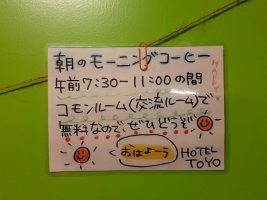 朝のモーニングコーヒー
午前7:30-11:00の間
コモンルーム(交流ルーム)で
無料なので、ぜひどうぞ
おはよーう
HOTEL
TOYO